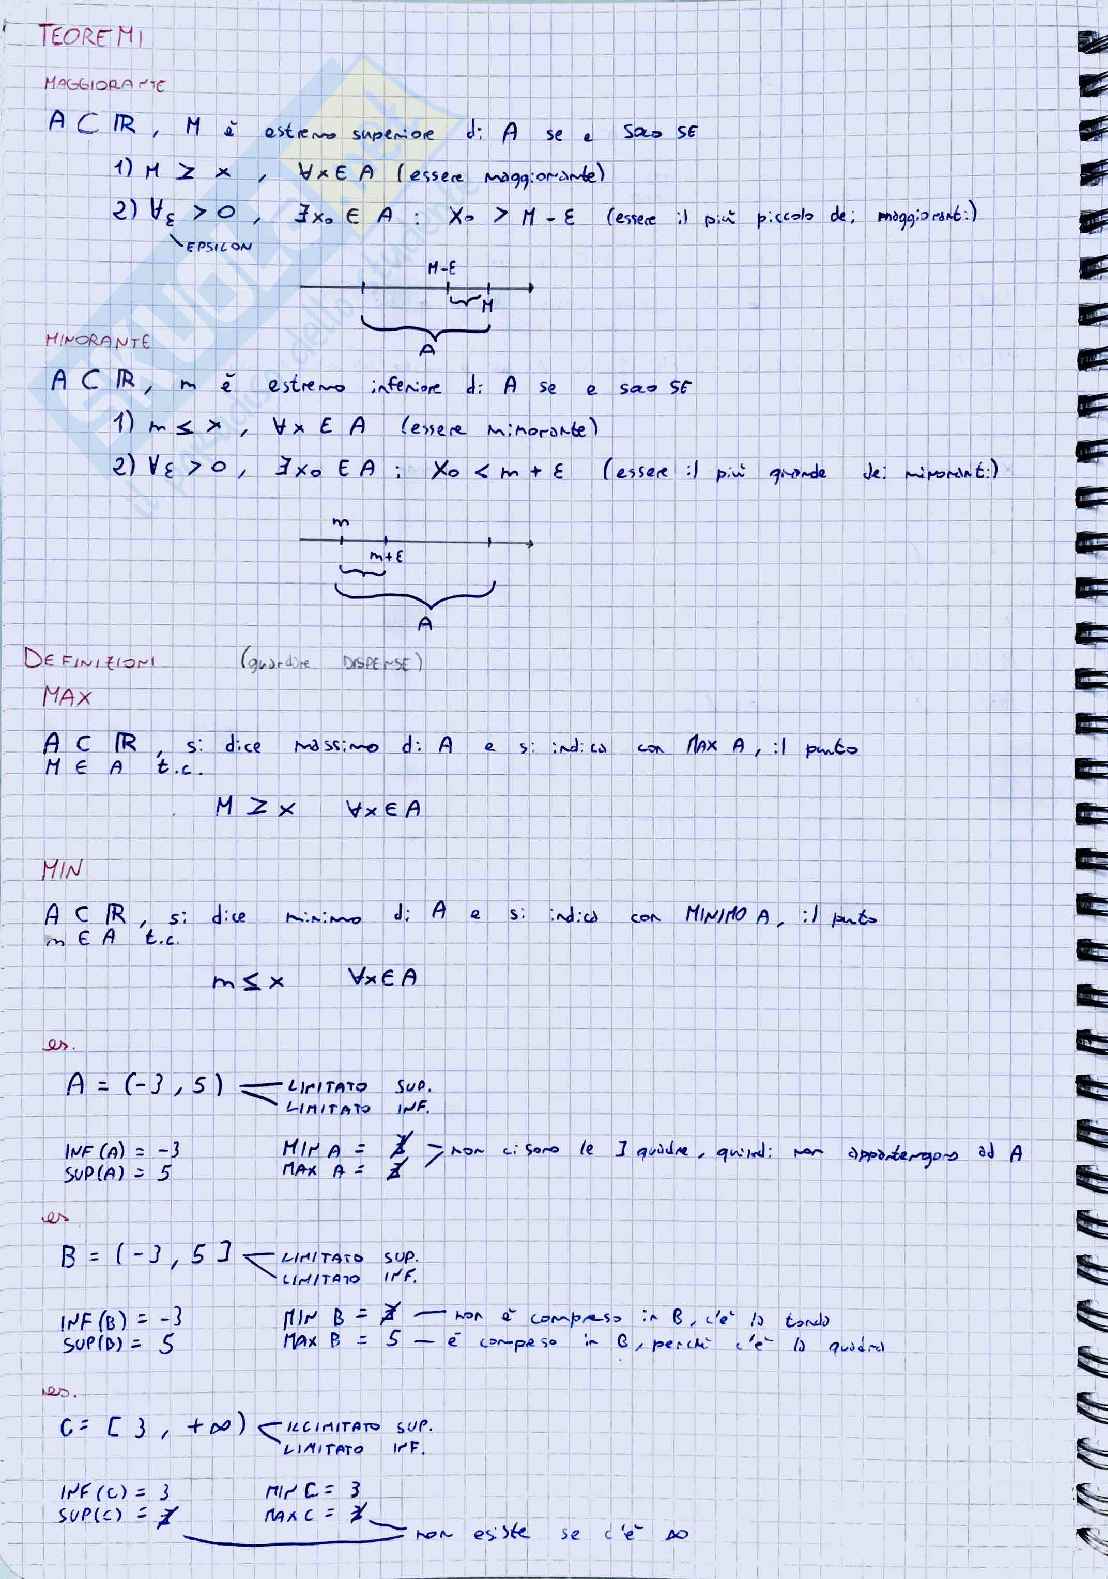 TEOREMI
MAGGIORANTE
A ⊂ ℝ, M è estremo superiore di A se e solo SE
1) M ≥ x, ∀x ∈ A (essere maggiorante)
2) ∀ε > 0, ∃x₀ ∈ A : x₀ > M - ε (essere il più piccolo dei maggioranti)
EPSILON
M-ε
M
A
MINORANTE
A ⊂ ℝ, m è estremo inferiore di A se e solo SE
1) m ≤ x, ∀x ∈ A (essere minorante)
2) ∀ε > 0, ∃x₀ ∈ A : x₀ < m + ε (essere il più grande dei minoranti)
m
m+ε
A
DEFINIZIONI (guardare DISPENSE)
MAX
A ⊂ ℝ, si dice massimo di A e si indica con MAX A, il punto
M ∈ A t.c.
M ≥ x ∀x ∈ A
MIN
A ⊂ ℝ, si dice minimo di A e si indica con MINIMO A, il punto
m ∈ A t.c.
m ≤ x ∀x ∈ A
es.
A = (-3, 5) LIMITATO SUP.
LIMITATO INF.
INF(A) = -3 MIN A = ∄ non ci sono le ] quadre, quindi non appartengono ad A
SUP(A) = 5 MAX A = ∄
es
B = (-3, 5] LIMITATO SUP.
LIMITATO INF.
INF(B) = -3 MIN B = ∄ — non è compreso in B, c'è la tonda
SUP(B) = 5 MAX B = 5 — è compreso in B, perché c'è la quadra
es.
C = [3, +∞) ILLIMITATO SUP.
LIMITATO INF.
INF(C) = 3 MIN C = 3
SUP(C) = ∄ MAX C = ∄
non esiste se c'è ∞